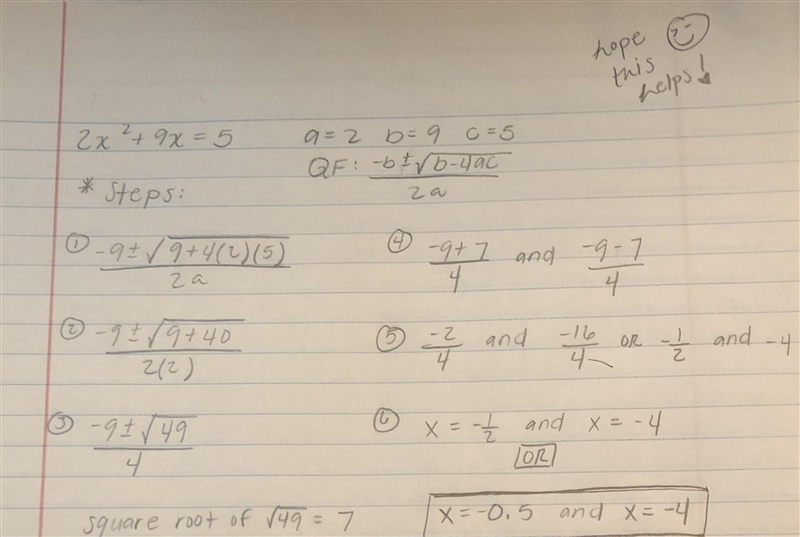 hope
this
helps!
2x² + 9x = 5 a = 2 b = 9 c = 5
QF: (-b ± √(b-4ac))/(2a)
* Steps:
① (-9 ± √(9+4(2)(5)))/(2a)
② (-9 ± √(9+40))/(2(2))
③ (-9 ± √49)/4
square root of √49 = 7
④ (-9+7)/4 and (-9-7)/4
⑤ -2/4 and -16/4 OR -1/2 and -4
⑥ x = -1/2 and x = -4
OR
x = -0.5 and x = -4